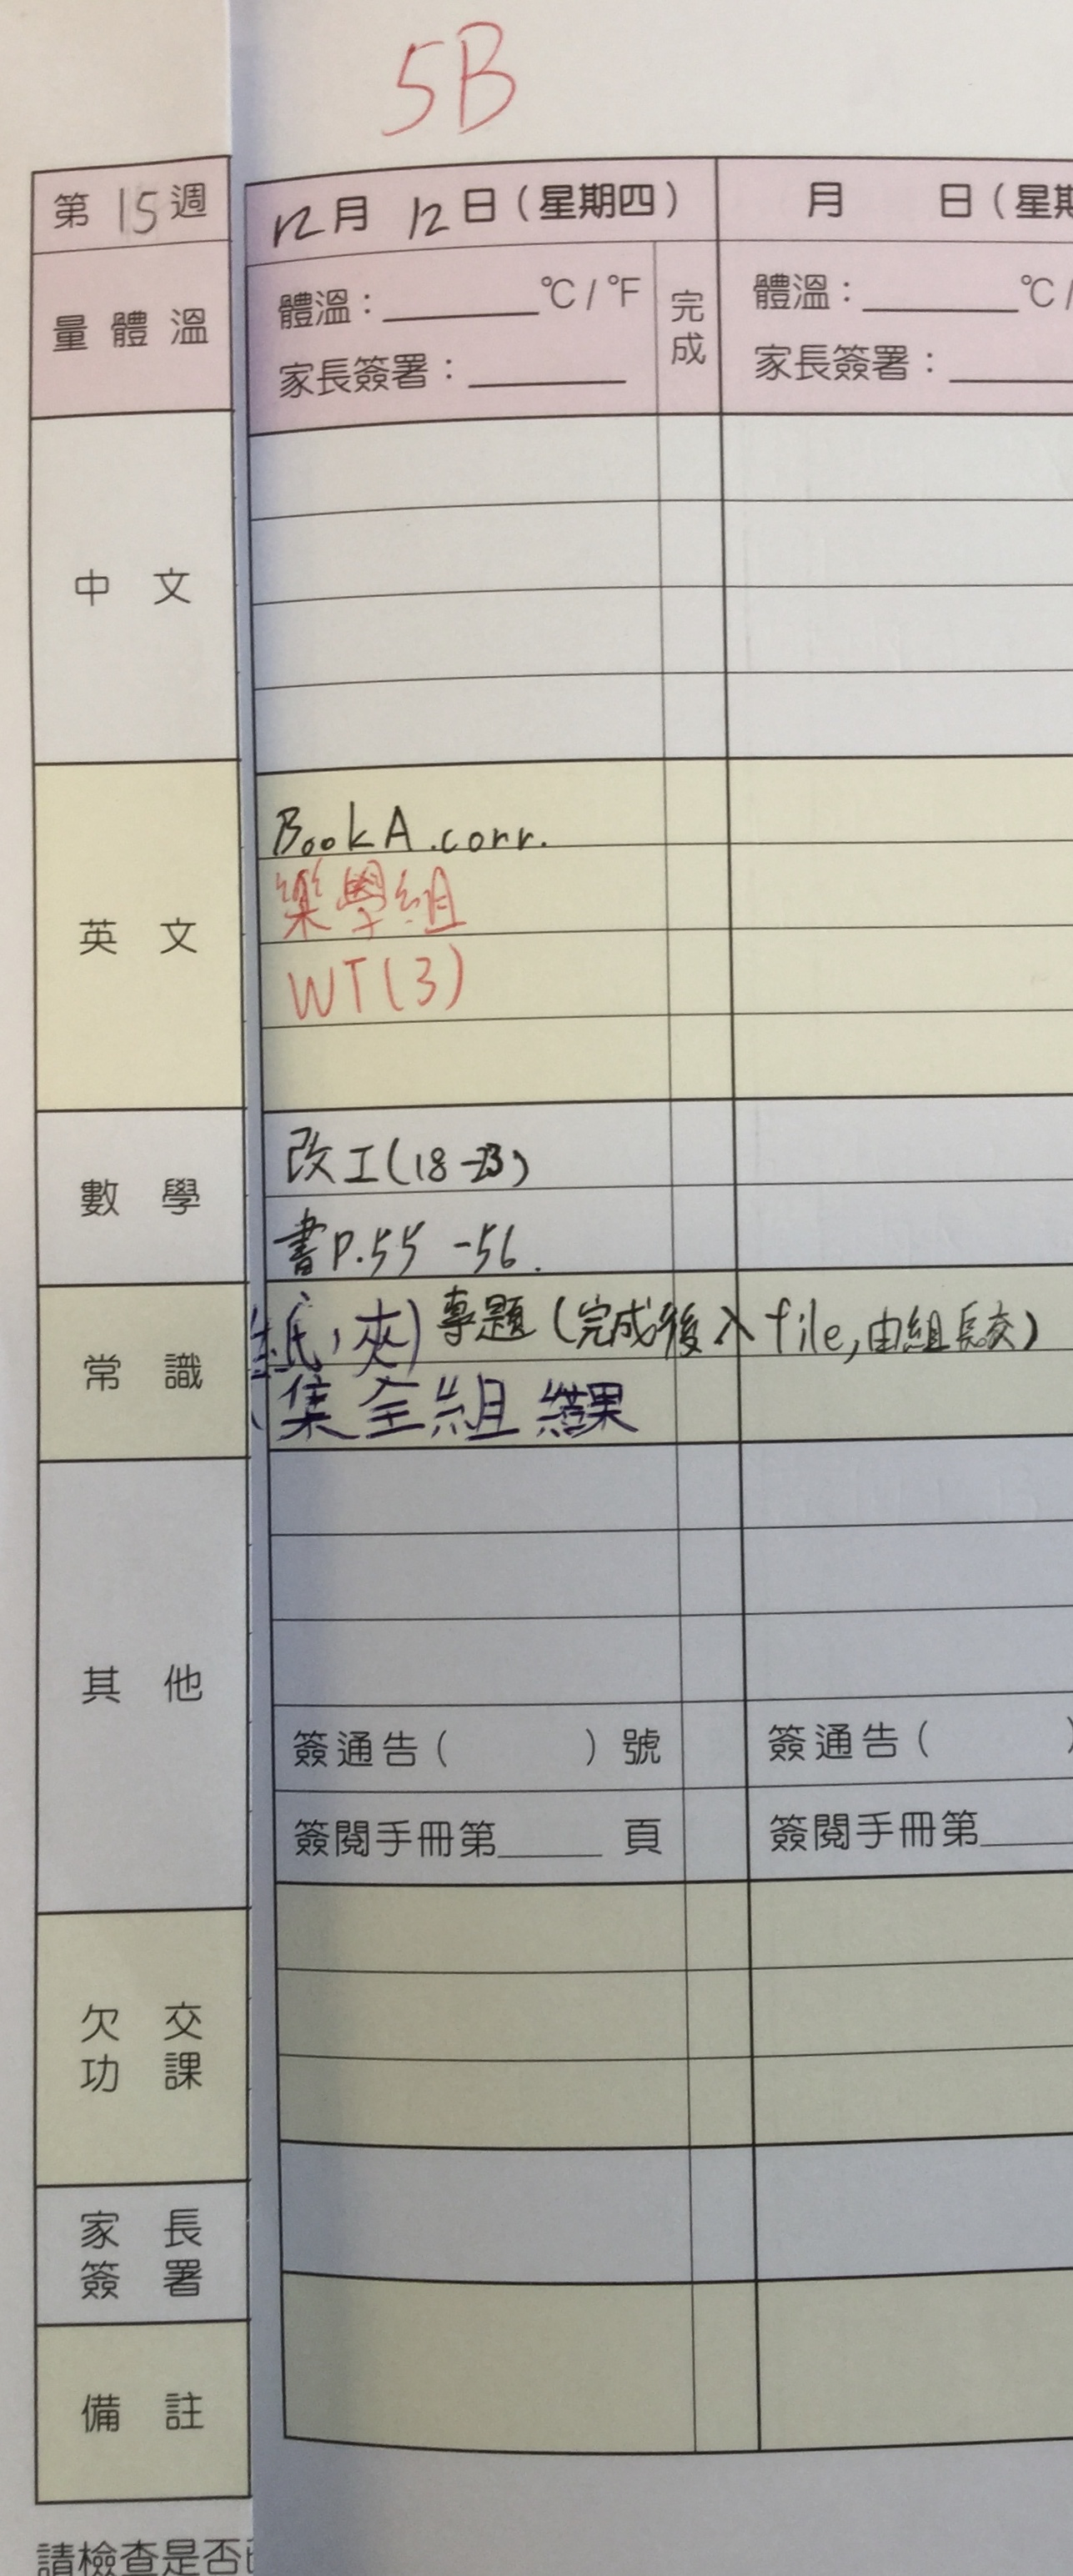 5B
第15週
12月 12日（星期四）
月 日（星期
量體溫
體溫：______°C / °F
家長簽署：______
完成
體溫：______°C /
家長簽署：______
中文
英文
Book A .corr.
樂學組
WT(3)
數學
改工(18-23)
書P.55 -56.
常識
紙，夾) 專題 (完成後入file,由組長交)
(集全組結果
其他
簽通告（ ）號
簽通告（ ）
簽閱手冊第_____ 頁
簽閱手冊第_____
欠交功課
家長簽署
備註
請檢查是否